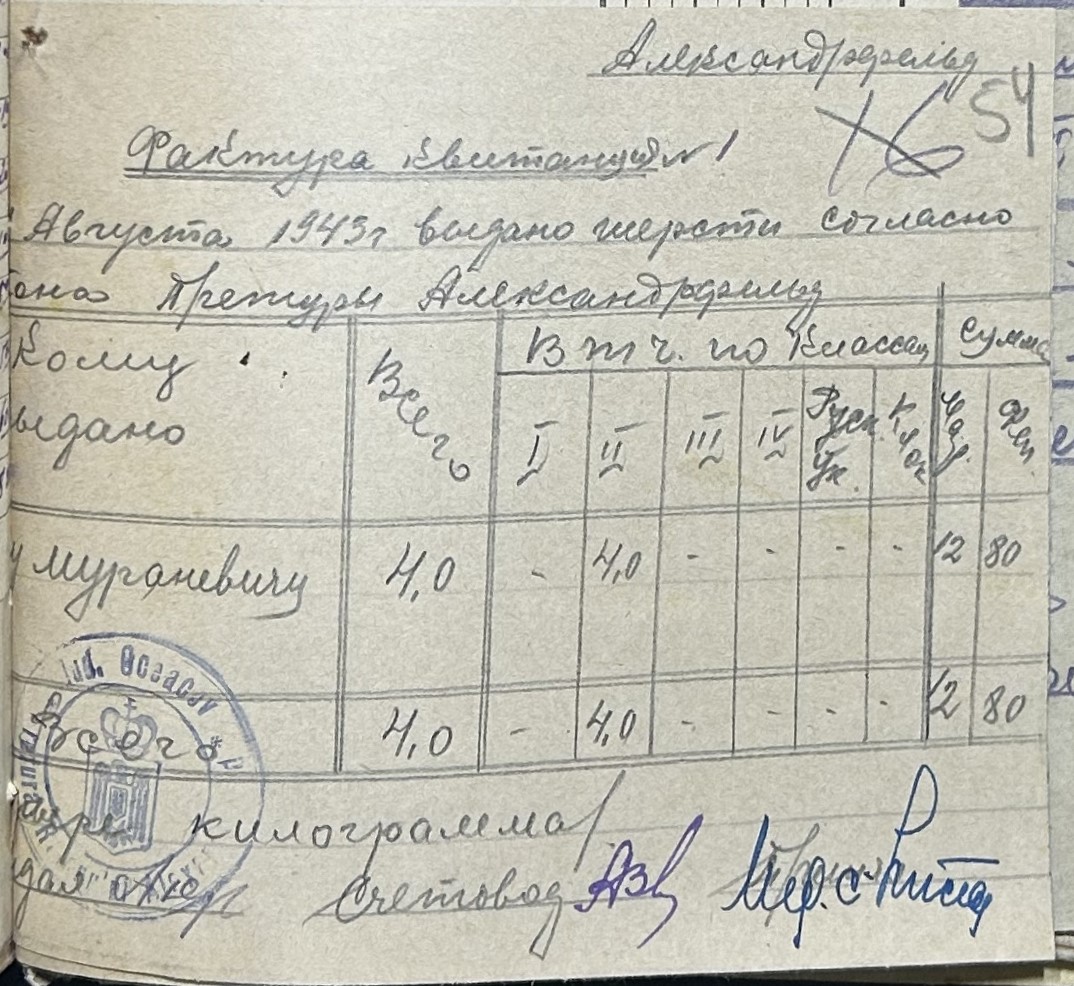 Александрфельд
54
Фактура квитанция № 1
Августа 1943г выдано шерсти согласно
она Претуры Александрфельд
Кому
ыдано
Всего
В т ч. по классам
Сумма
I II III IV Руск. Ук. Клок
Мар. Фен.
у Мурзневичу 4,0 - 4,0 - - - - 12 80
Всего 4,0 - 4,0 - - - - 12 80
Jud. Oceacov
килограмма/
Счетовод